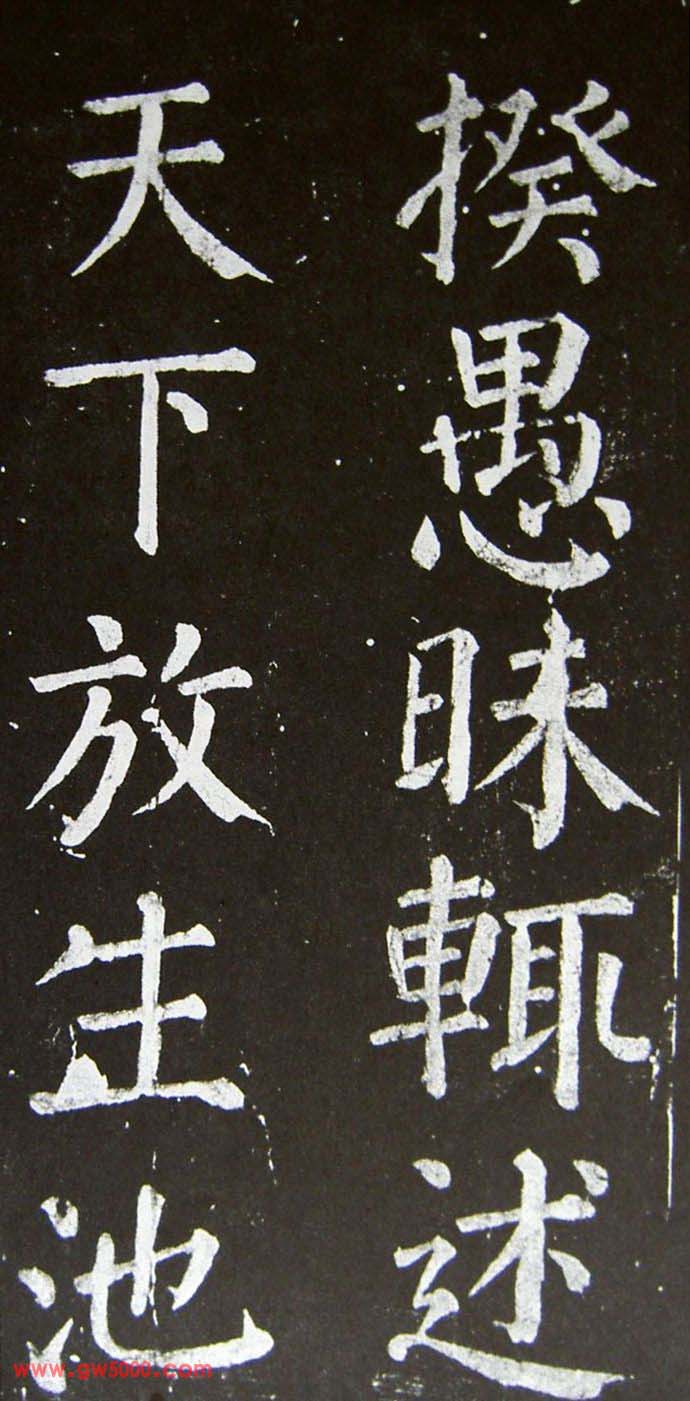 揆愚昧輒述
天下放生池
www.gw5000.com